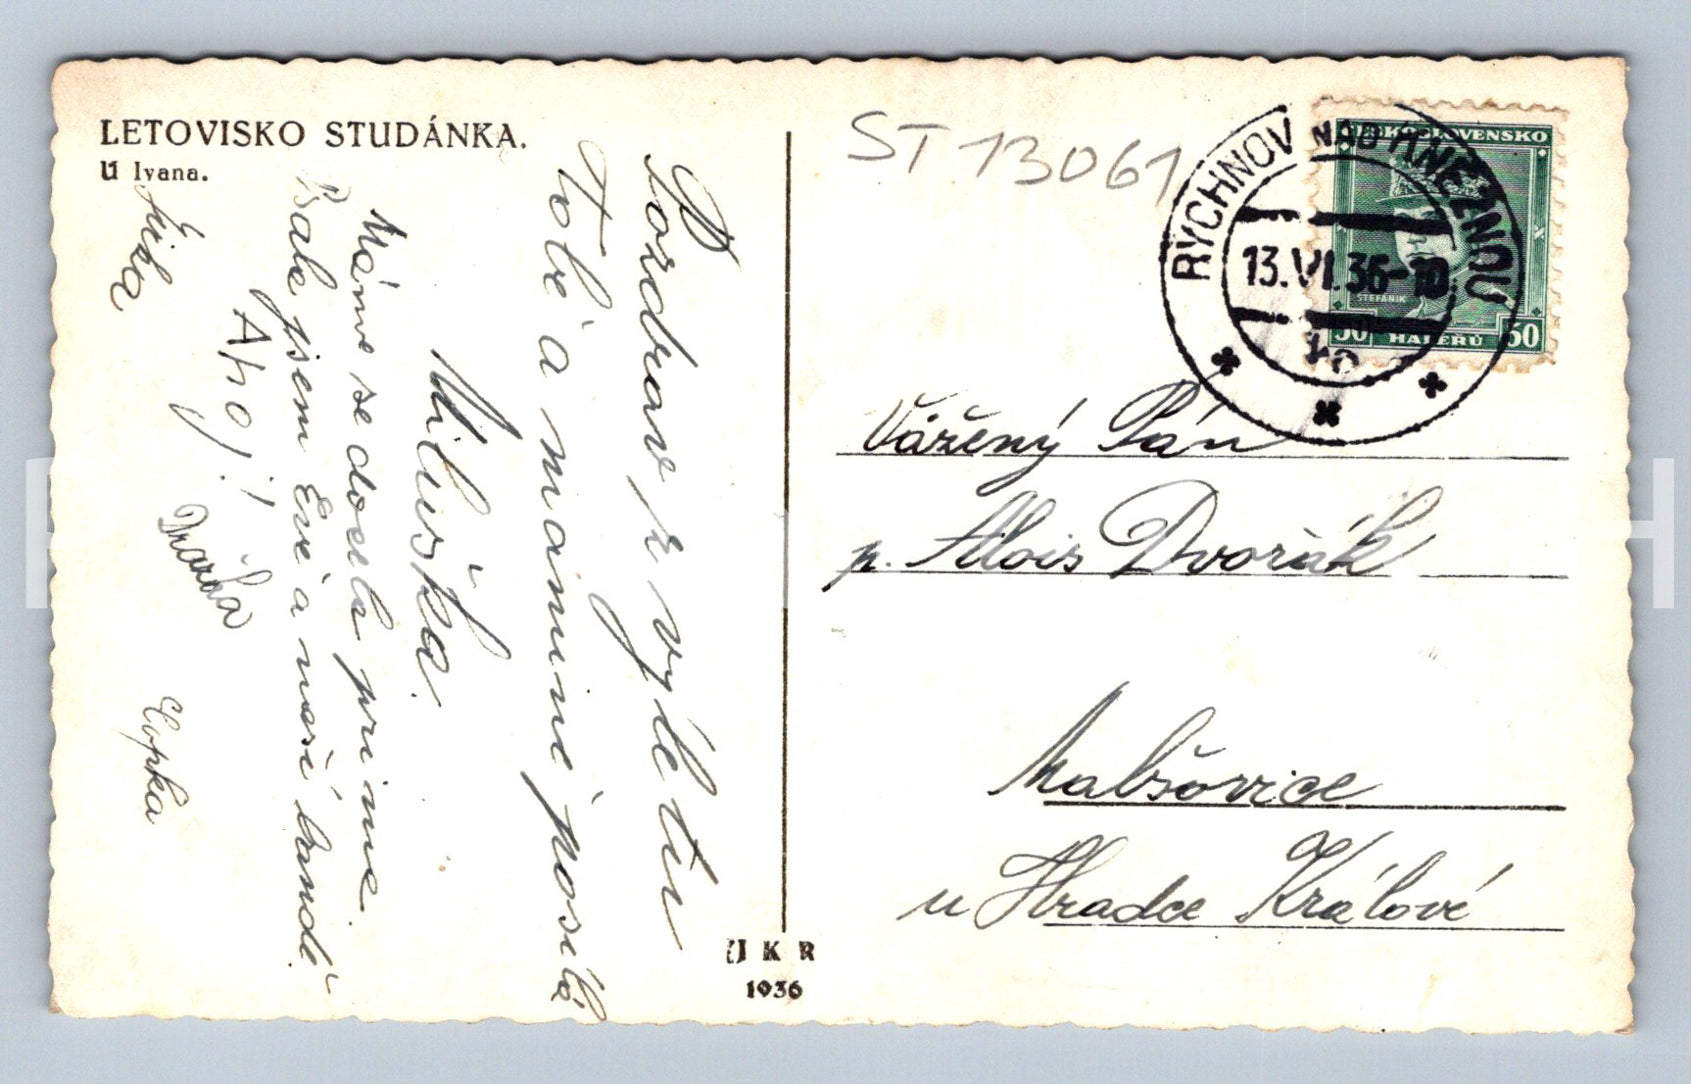 LETOVISKO STUDÁNKA.
U Ivana.
Pozdrav z výletu
Tobě a mamině posílá
Miluška.
Máme se docela prima.
jsem Evě a naší bandě
Ahoj!
Jirka
ST 13061
RYCHNOV NAD KNĚŽNOU
13.VI.36-10
ČESKOSLOVENSKO
ŠTEFÁNIK
50 HALÉŘŮ 50
Vážený Pán
p. Alois Dvořák
Malšovice
u Hradce Králové
K R
1936